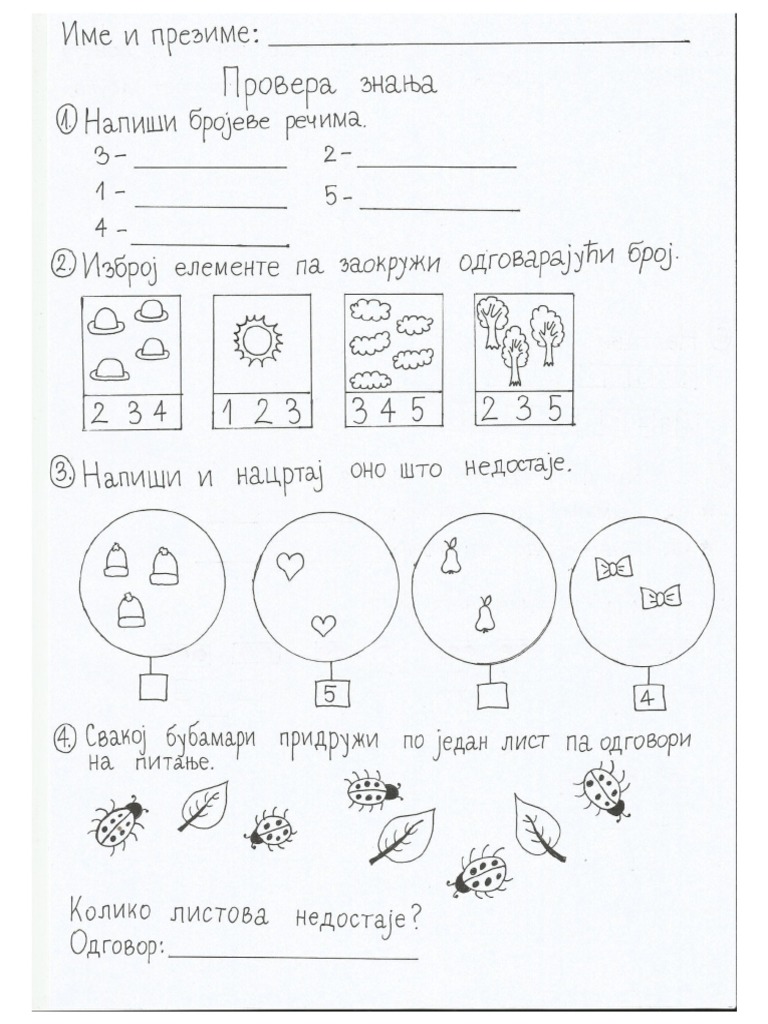 Име и презиме: ____________________
Провера знања
1. Напиши бројеве речима.
3 - __________ 2 - __________
1 - __________ 5 - __________
4 - __________
2. Изброј елементе па заокружи одговарајући број.
2 3 4 1 2 3 3 4 5 2 3 5
3. Напиши и нацртај оно што недостаје.
5 4
4. Свакој бубамари придружи по један лист па одговори
на питање.
Колико листова недостаје?
Одговор: ____________________